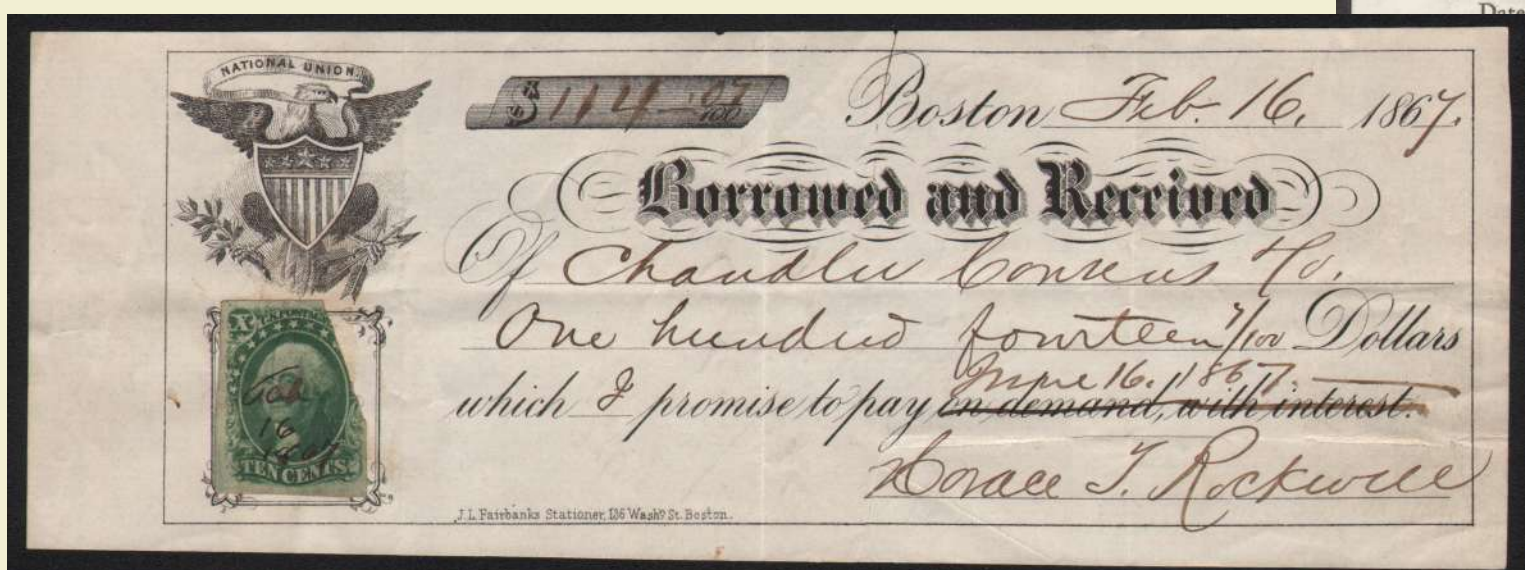 Date
NATIONAL UNION.
$114 07/100
Boston Feb. 16, 1867.
Borrowed and Received
Of Chandler & Co.
One hundred fourteen 7/100 Dollars
June 16, 1867.
which I promise to pay on demand, with interest.
Horace T. Rockwell
X U.S. POSTAGE X
Feb
16
1867
TEN CENTS
J. L. Fairbanks Stationer, 136 Washn St. Boston.